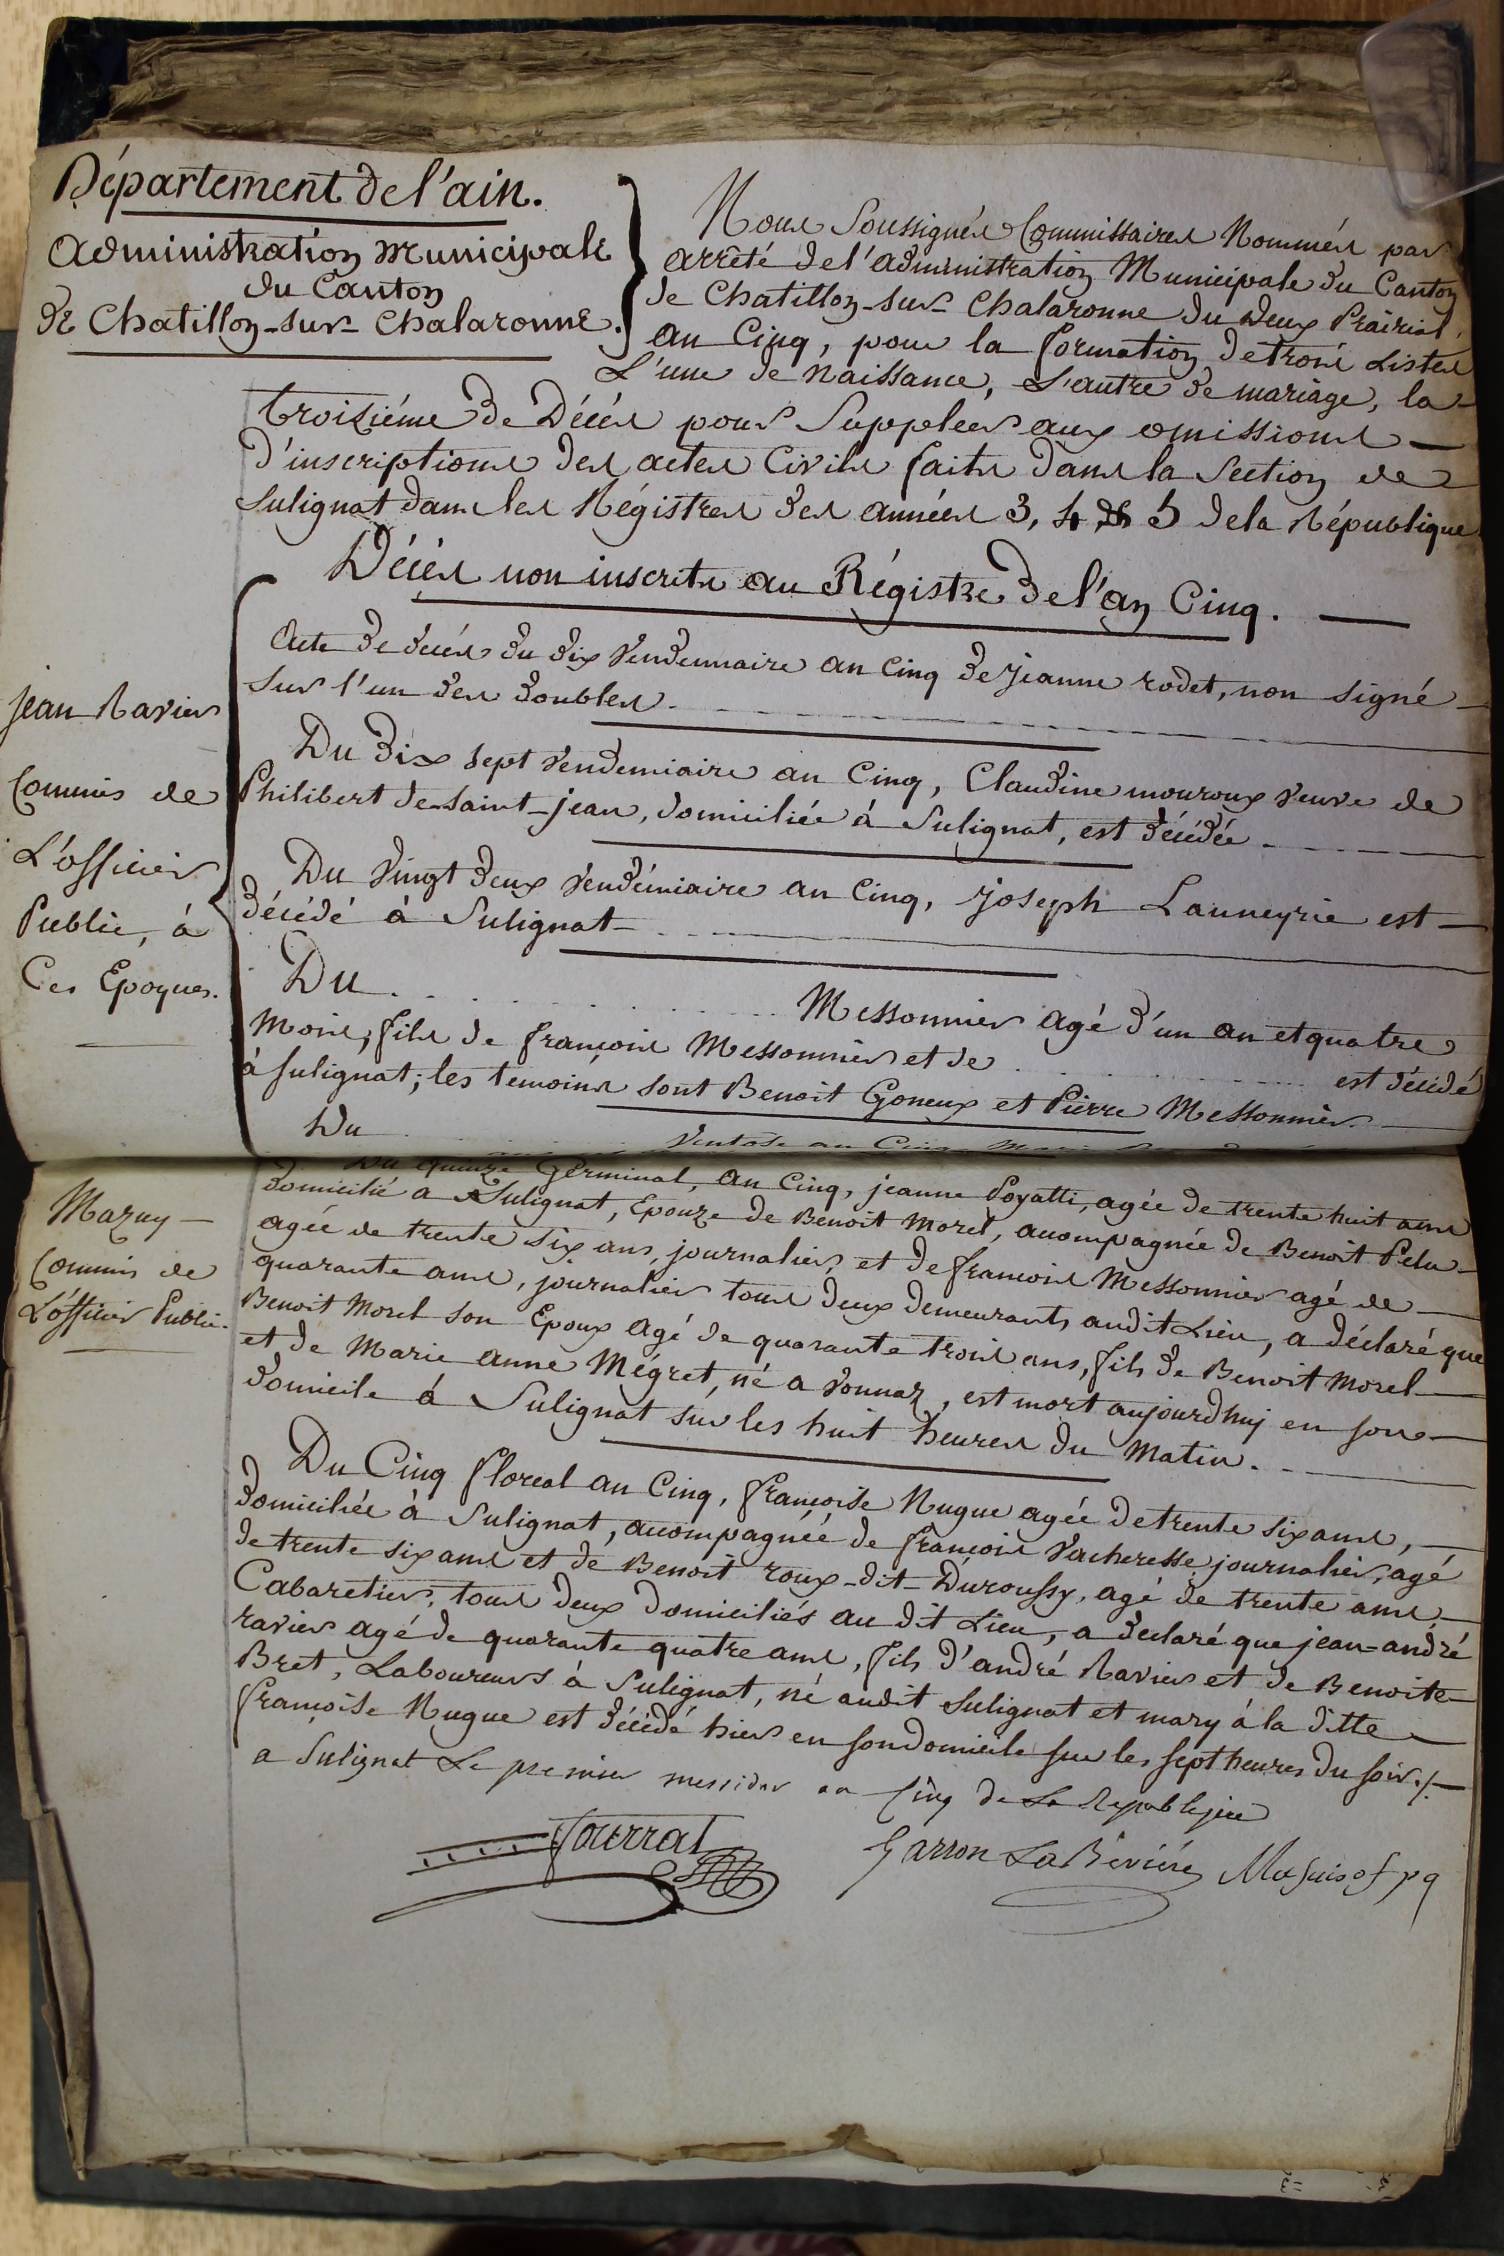 Département de l'ain.
administration Municipale
du Canton
de Chatillon-sur-Chalaronne.
Nous Soussignés Commissaires Nommés par
arrêté de l'administration Municipale du Canton
de Chatillon-sur-Chalaronne du Deux Prairial
an Cinq, pour la formation de trois Listes
L'une de Naissance, L'autre de mariage, la
troiziéme de Décés pour Suppleer aux omissions
d'inscriptions des actes Civils faits dans la Section de
Sulignat dans les Régistres des années 3, 4 5 de la République
Décés non inscrits au Régistre de l'an Cinq.
Acte de décés du dix Vendemiaire an cinq de jeanne rodet, non signé
sur l'un des doubles
Du dix sept Vendemiaire an Cinq, Claudine mouroux veuve de
Philibert de Saint-jean, domiciliée à Sulignat, est décédée
Du Vingt deux Vendémiaire an Cinq, joseph Launeyrie est
décédé à Sulignat
Du Messonnier agé d'un an et quatre
Mois, fils de françois Messonnier et de est décédé
à Sulignat; les temoins sont Benoit Goneux et Pierre Messonnier.
Du Ventose an Cinq
jean Ravier
Commis de
L'officier
Public, à
Ces Epoques.
Du quinze Germinal, an Cinq, jeanne Poyatti, agée de trente huit ans
domicilié a Sulignat, Epouze de Benoit Morel, acompagnée de Benoit Pelu
agée de trente six ans, journalier, et de francois Messonnier agé de
quarante ans, journalier tous deux demeurants audit Lieu, a déclaré que
Benoit Morel son Epoux agé de quarante trois ans, fils de Benoit Morel
et de Marie anne Mégret, né a Vonnaz, est mort aujourdhuj en son
domicile à Sulignat sur les huit heures du Matin.
Mazuy
Commis de
L'officier Public.
Du Cinq floreal an Cinq, françoise Nugue agée de trente six ans,
domiciliée à Sulignat, acompagnéé de francois Vacheresse journalier, agé
de trente six ans et de Benoit roux-dit-Duroussy, agé de trente ans
Cabaretier, tous deux domiciliés au dit Lieu, a declaré que jean=andré
ravier agé de quarante quatre ans, fils d'andré Ravier et de Benoite
Bret, Laboureurs à Sulignat, né audit Sulignat et mary à la ditte
françoise Nugue est décédé hier en son domicile sur les sept heures du soir./.
a Sulignat Le premier messidor an Cinq de La Republique
Tourral
Garron La Béviére